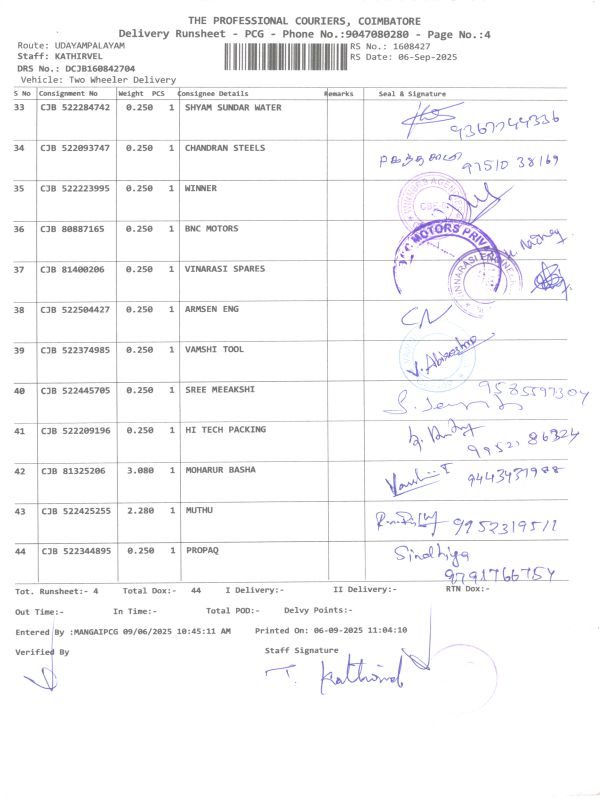 THE PROFESSIONAL COURIERS, COIMBATORE
Delivery Runsheet - PCG - Phone No.:9047080280 - Page No.:4
Route: UDAYAMPALAYAM RS No.: 1608427
Staff: KATHIRVEL RS Date: 06-Sep-2025
DRS No.: DCJB160842704
Vehicle: Two Wheeler Delivery
S No Consignment No Weight PCS Consignee Details Remarks Seal & Signature
33 CJB 522284742 0.250 1 SHYAM SUNDAR WATER
9367744336
34 CJB 522093747 0.250 1 CHANDRAN STEELS 97510 38169
35 CJB 522223995 0.250 1 WINNER
36 CJB 80887165 0.250 1 BNC MOTORS MOTORS PRIV
37 CJB 81400206 0.250 1 VINARASI SPARES
38 CJB 522504427 0.250 1 ARMSEN ENG
39 CJB 522374985 0.250 1 VAMSHI TOOL
40 CJB 522445705 0.250 1 SREE MEEAKSHI 9585597304
41 CJB 522209196 0.250 1 HI TECH PACKING
99521 86324
42 CJB 81325206 3.080 1 MOHARUR BASHA 9443431988
43 CJB 522425255 2.280 1 MUTHU 9952319511
44 CJB 522344895 0.250 1 PROPAQ Sindhiya
9791766754
Tot. Runsheet:- 4 Total Dox:- 44 I Delivery:- II Delivery:- RTN Dox:-
Out Time:- In Time:- Total POD:- Delvy Points:-
Entered By :MANGAIPCG 09/06/2025 10:45:11 AM Printed On: 06-09-2025 11:04:10
Verified By Staff Signature
T. Kathirvel